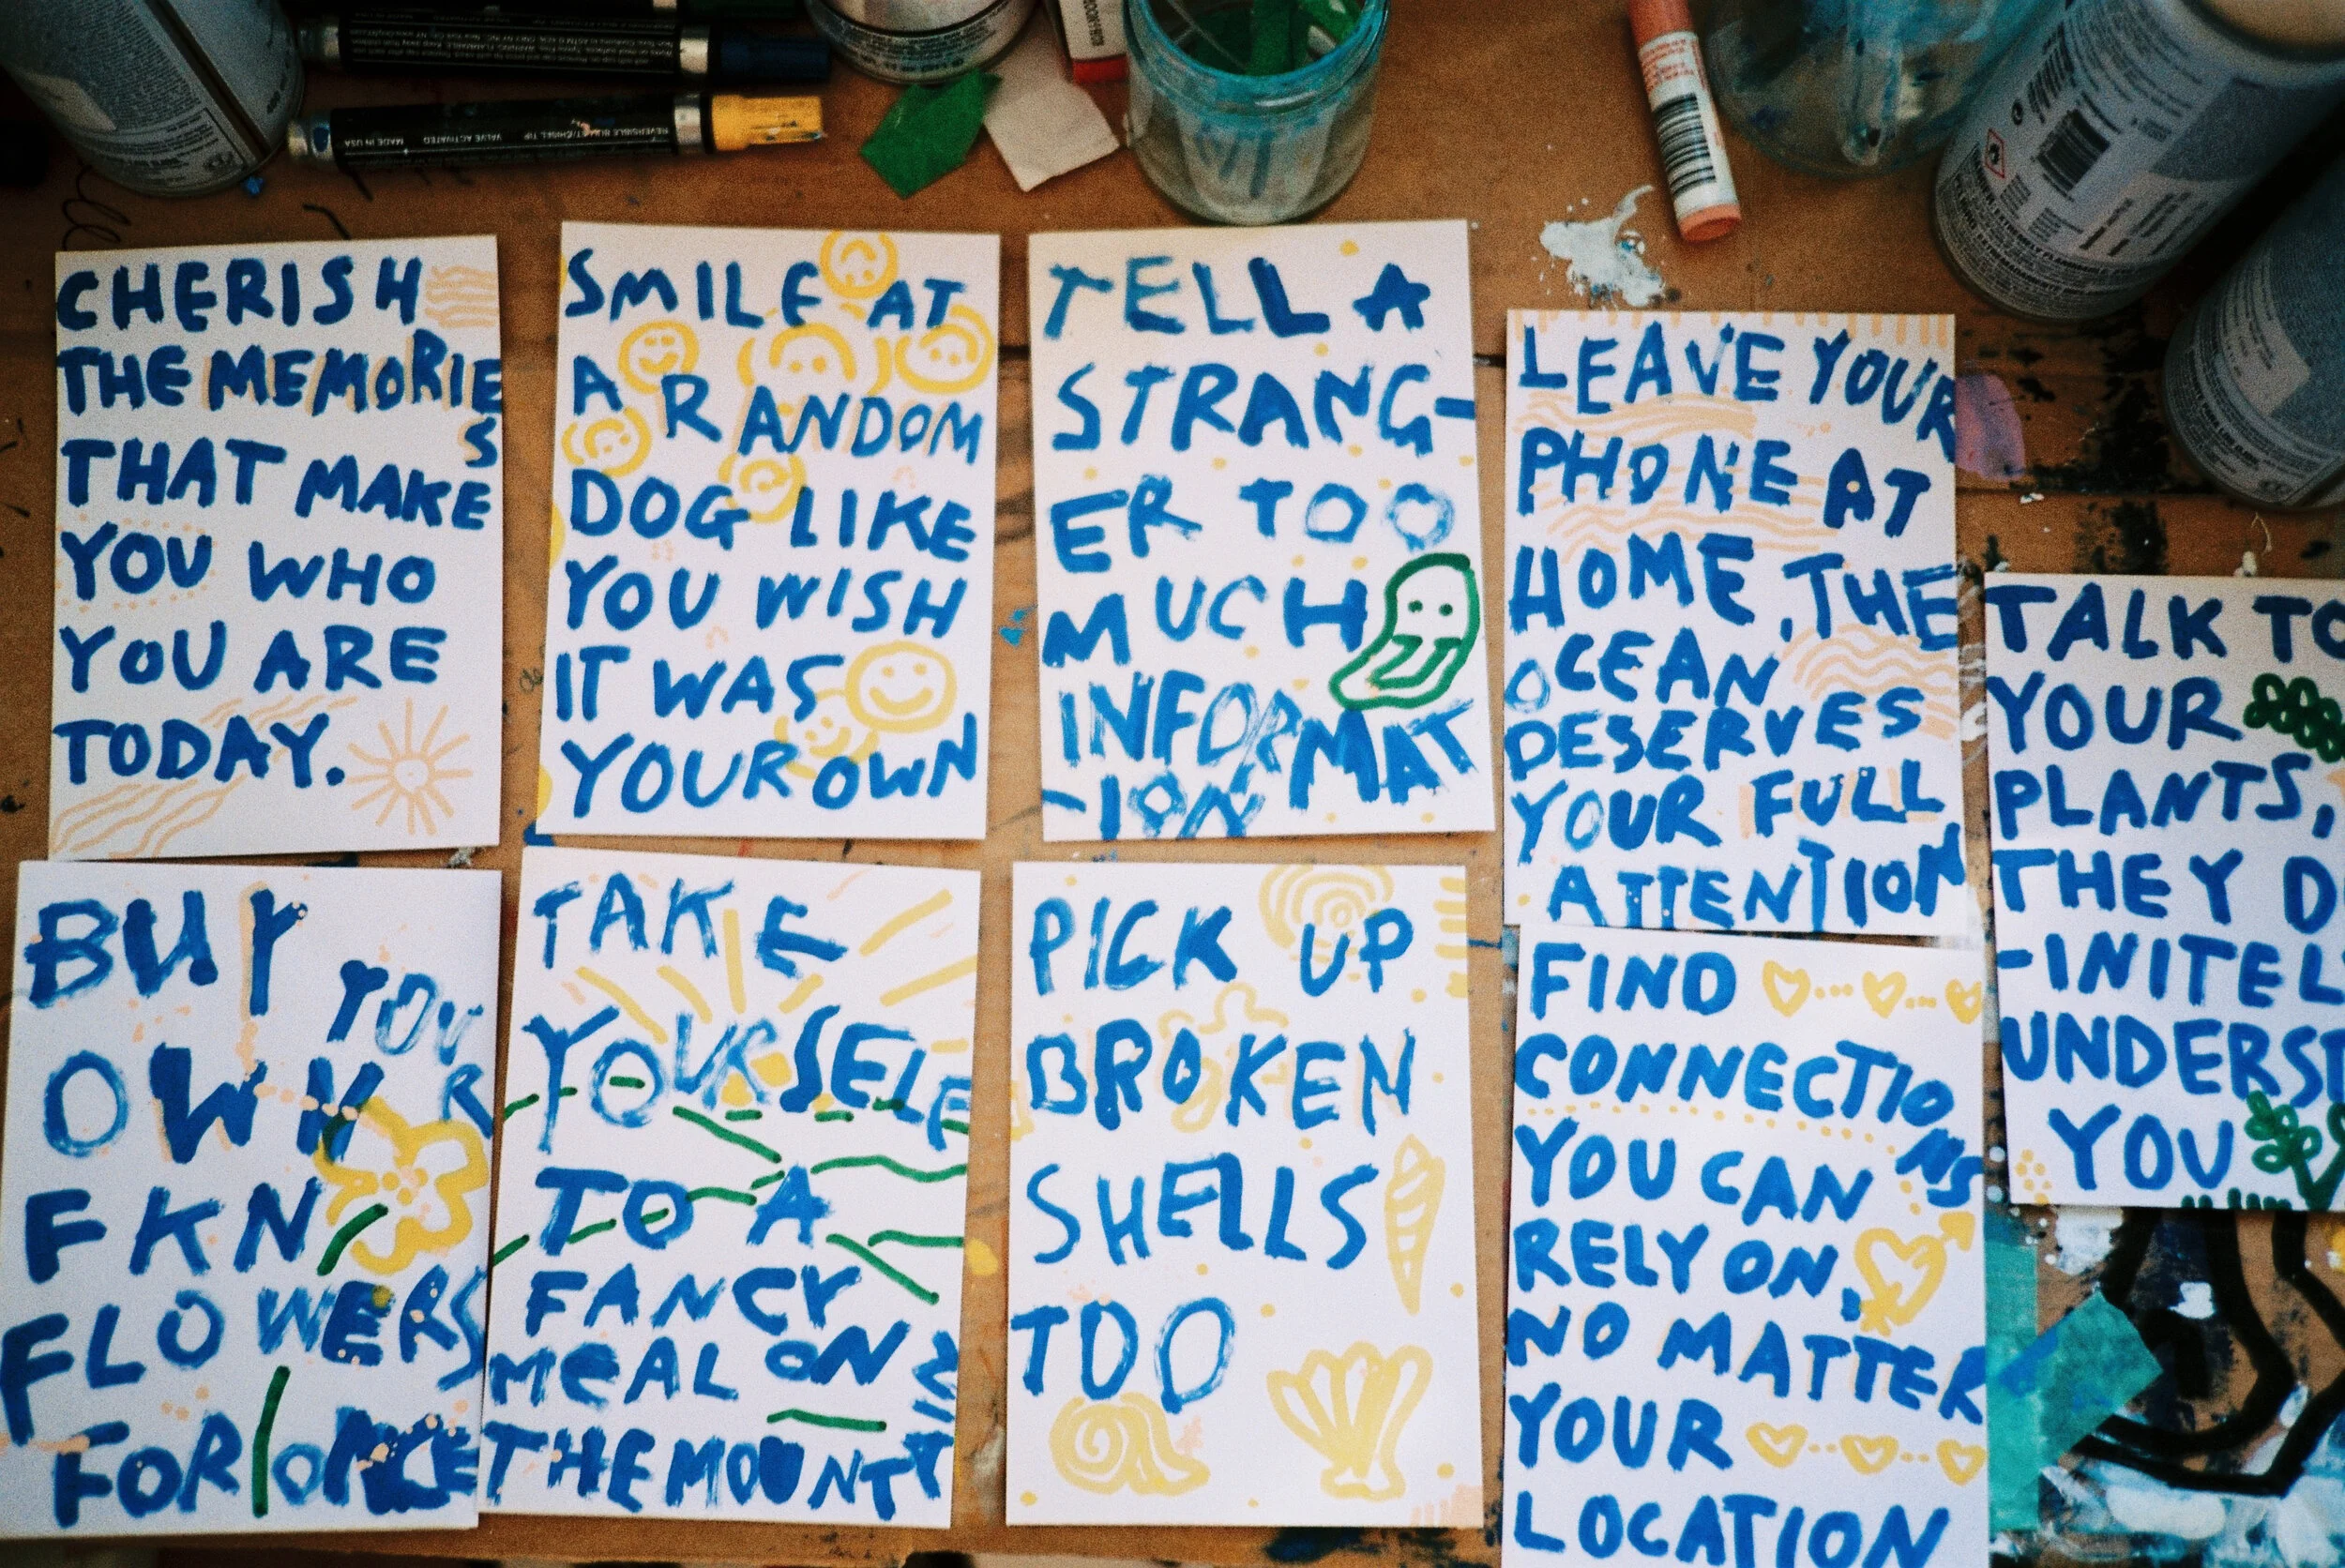 MADE IN USA
VALVE ACTIVATED
REVERSIBLE BULLET/CHISEL TIP
CHERISH
THE MEMORIE
S
THAT MAKE
YOU WHO
YOU ARE
TODAY.
SMILE AT
A RANDOM
DOG LIKE
YOU WISH
IT WAS
YOUR OWN
TELL A
STRANG-
ER TOO
MUCH
INFORMAT
-ION
LEAVE YOUR
PHONE AT
HOME, THE
OCEAN
DESERVES
YOUR FULL
ATTENTION
TALK TO
YOUR
PLANTS,
THEY D
-INITEL
UNDERST
YOU
BUY
YOUR
OWN
FKN
FLOWERS
FOR ONCE
TAKE
YOURSELF
TO A
FANCY
MEAL ON
THE MOUNTAIN
PICK UP
BROKEN
SHELLS
TOO
FIND
CONNECTIO
NS
YOU CAN
RELY ON,
NO MATTER
YOUR
LOCATION